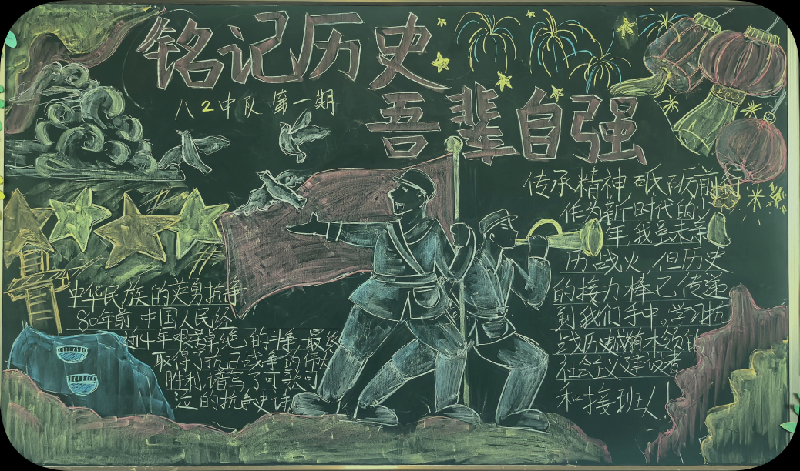 铭记历史
吾辈自强
八2中队 第一期
传承精神 砥砺前行
作为新时代的少
年,我虽未亲
历战火,但历史
的接力棒已传递
到我们手中,学习
历史
社会主义
和接班人!
中华民族的英勇抗争
80年前,中国人民经
14年艰苦卓绝的斗争,最终
取得了抗日战争的
胜利,谱写了可歌可
的抗战史诗